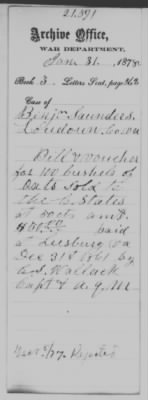 21.391
Archive Office,
WAR DEPARTMENT.
Jan 31. 1878.
Book 3. Letters Sent, page
Case of
Benjn. Saunders.
Loudoun Co. Va
Bill & Voucher
for 100 bushels of
Oats sold to
the C. States
at 50cts amt.
$50.00 paid
at Leesburg Va
Dec 31st 1861 by
Wallack
Capt & A.Q.M.